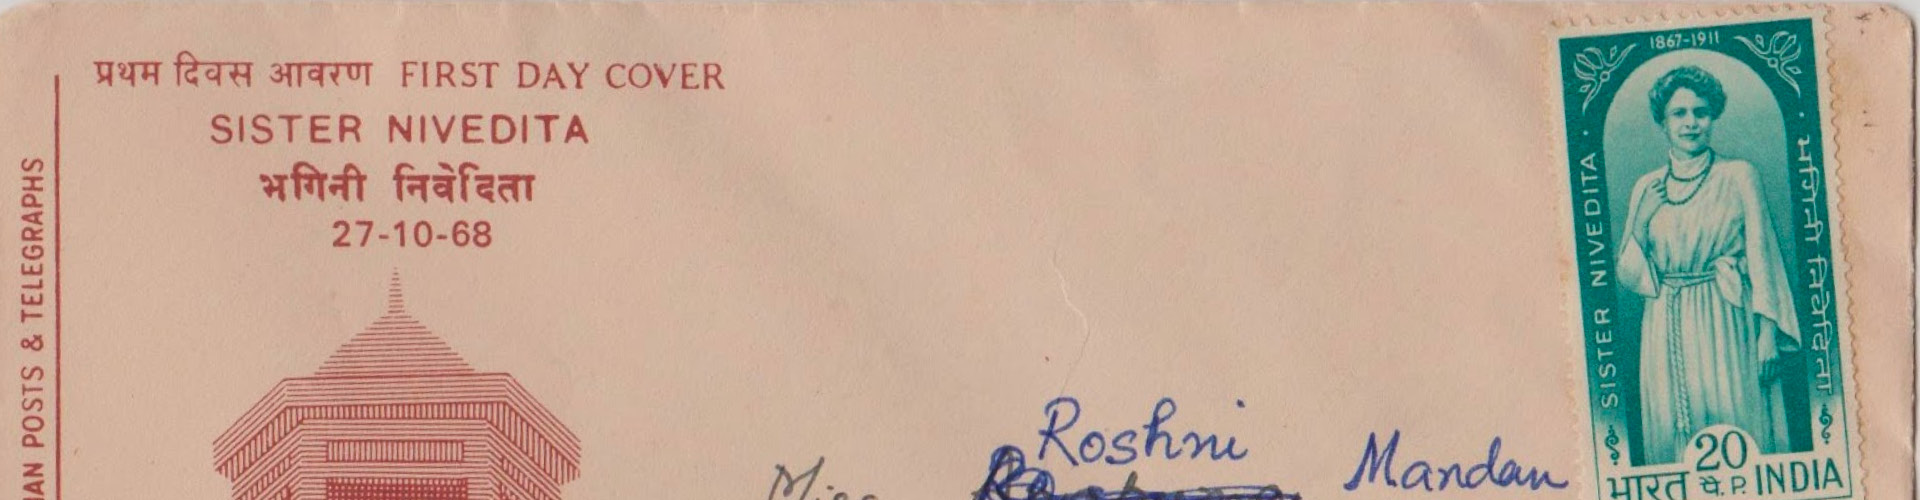 प्रथम दिवस आवरण FIRST DAY COVER
SISTER NIVEDITA
भगिनी निवेदिता
27-10-68
IAN POSTS & TELEGRAPHS
Roshni
Miss Mandan
1867-1911
SISTER NIVEDITA
भगिनी निवेदिता
20
भारत पै. P. INDIA